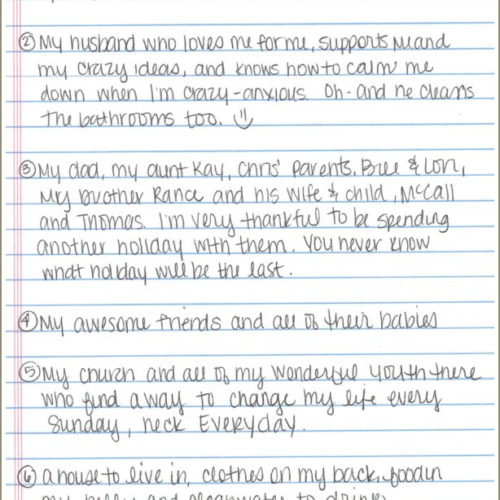 ② My husband who loves me for me, supports me and
my crazy ideas, and knows how to calm me
down when I'm crazy-anxious. Oh-and he cleans
the bathrooms too.
③ My dad, my aunt Kay, Chris' parents, Bree & Lori,
my brother Rance and his wife & child, McCall
and Thomas. I'm very thankful to be spending
another holiday with them. You never know
what holiday will be the last.
④ My awesome friends and all of their babies
⑤ My church and all of my wonderful youth there
who find a way to change my life every
Sunday, heck EVERYDAY.
⑥ a house to live in, clothes on my back, food in
my belly and clean water to drink.